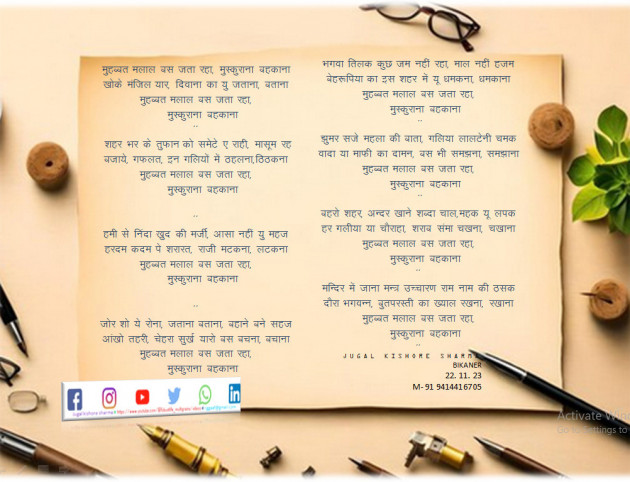 मुहब्बत मलाल बस जता रहा, मुस्कुराना बहकाना
खोके मंजिल यार, दिवाना का यु जताना, बताना
मुहब्बत मलाल बस जता रहा,
मुस्कुराना बहकाना
..
शहर भर के तुफान को समेटे ए राही, मासूम रह
बजाये, गफलत, इन गलियों में ठहलना,ठिठकना
मुहब्बत मलाल बस जता रहा,
मुस्कुराना बहकाना
..
हमी से निंदा खुद की मर्जी, आसा नही यु महज
हरदम कदम पे शरारत, राजी मटकना, लटकना
मुहब्बत मलाल बस जता रहा,
मुस्कुराना बहकाना
..
जोर शो ये रोना, जताना बताना, बहाने बने सहज
आंखो तहरी, चेहरा सुर्ख यारो बस बचना, बचाना
मुहब्बत मलाल बस जता रहा,
मुस्कुराना बहकाना
भगवा तिलक कुछ जम नही रहा, माल नही हजम
बेहरूपिया का इस शहर मे यू धमकना, धमकाना
मुहब्बत मलाल बस जता रहा,
मुस्कुराना बहकाना
..
झुमर सजे महला की बाता, गलिया लालटेनी चमक
वादा या माफी का दामन, बस भी समझना, समझाना
मुहब्बत मलाल बस जता रहा,
मुस्कुराना बहकाना
..
बहरो शहर, अन्दर खाने शब्दा चाल,महक यू लपक
हर गलीया या चौराहा, शराब संमा चखना, चखाना
मुहब्बत मलाल बस जता रहा,
मुस्कुराना बहकाना
..
मन्दिर में जाना मन्त्र उच्चारण राम नाम की ठसक
दौरा भगयन्न, बुतपरस्ती का ख्याल रखना, रखाना
मुहब्बत मलाल बस जता रहा,
मुस्कुराना बहकाना
..
JUGAL KISHORE SHARMA
BIKANER
22. 11. 23
M- 91 9414416705
Activate Win